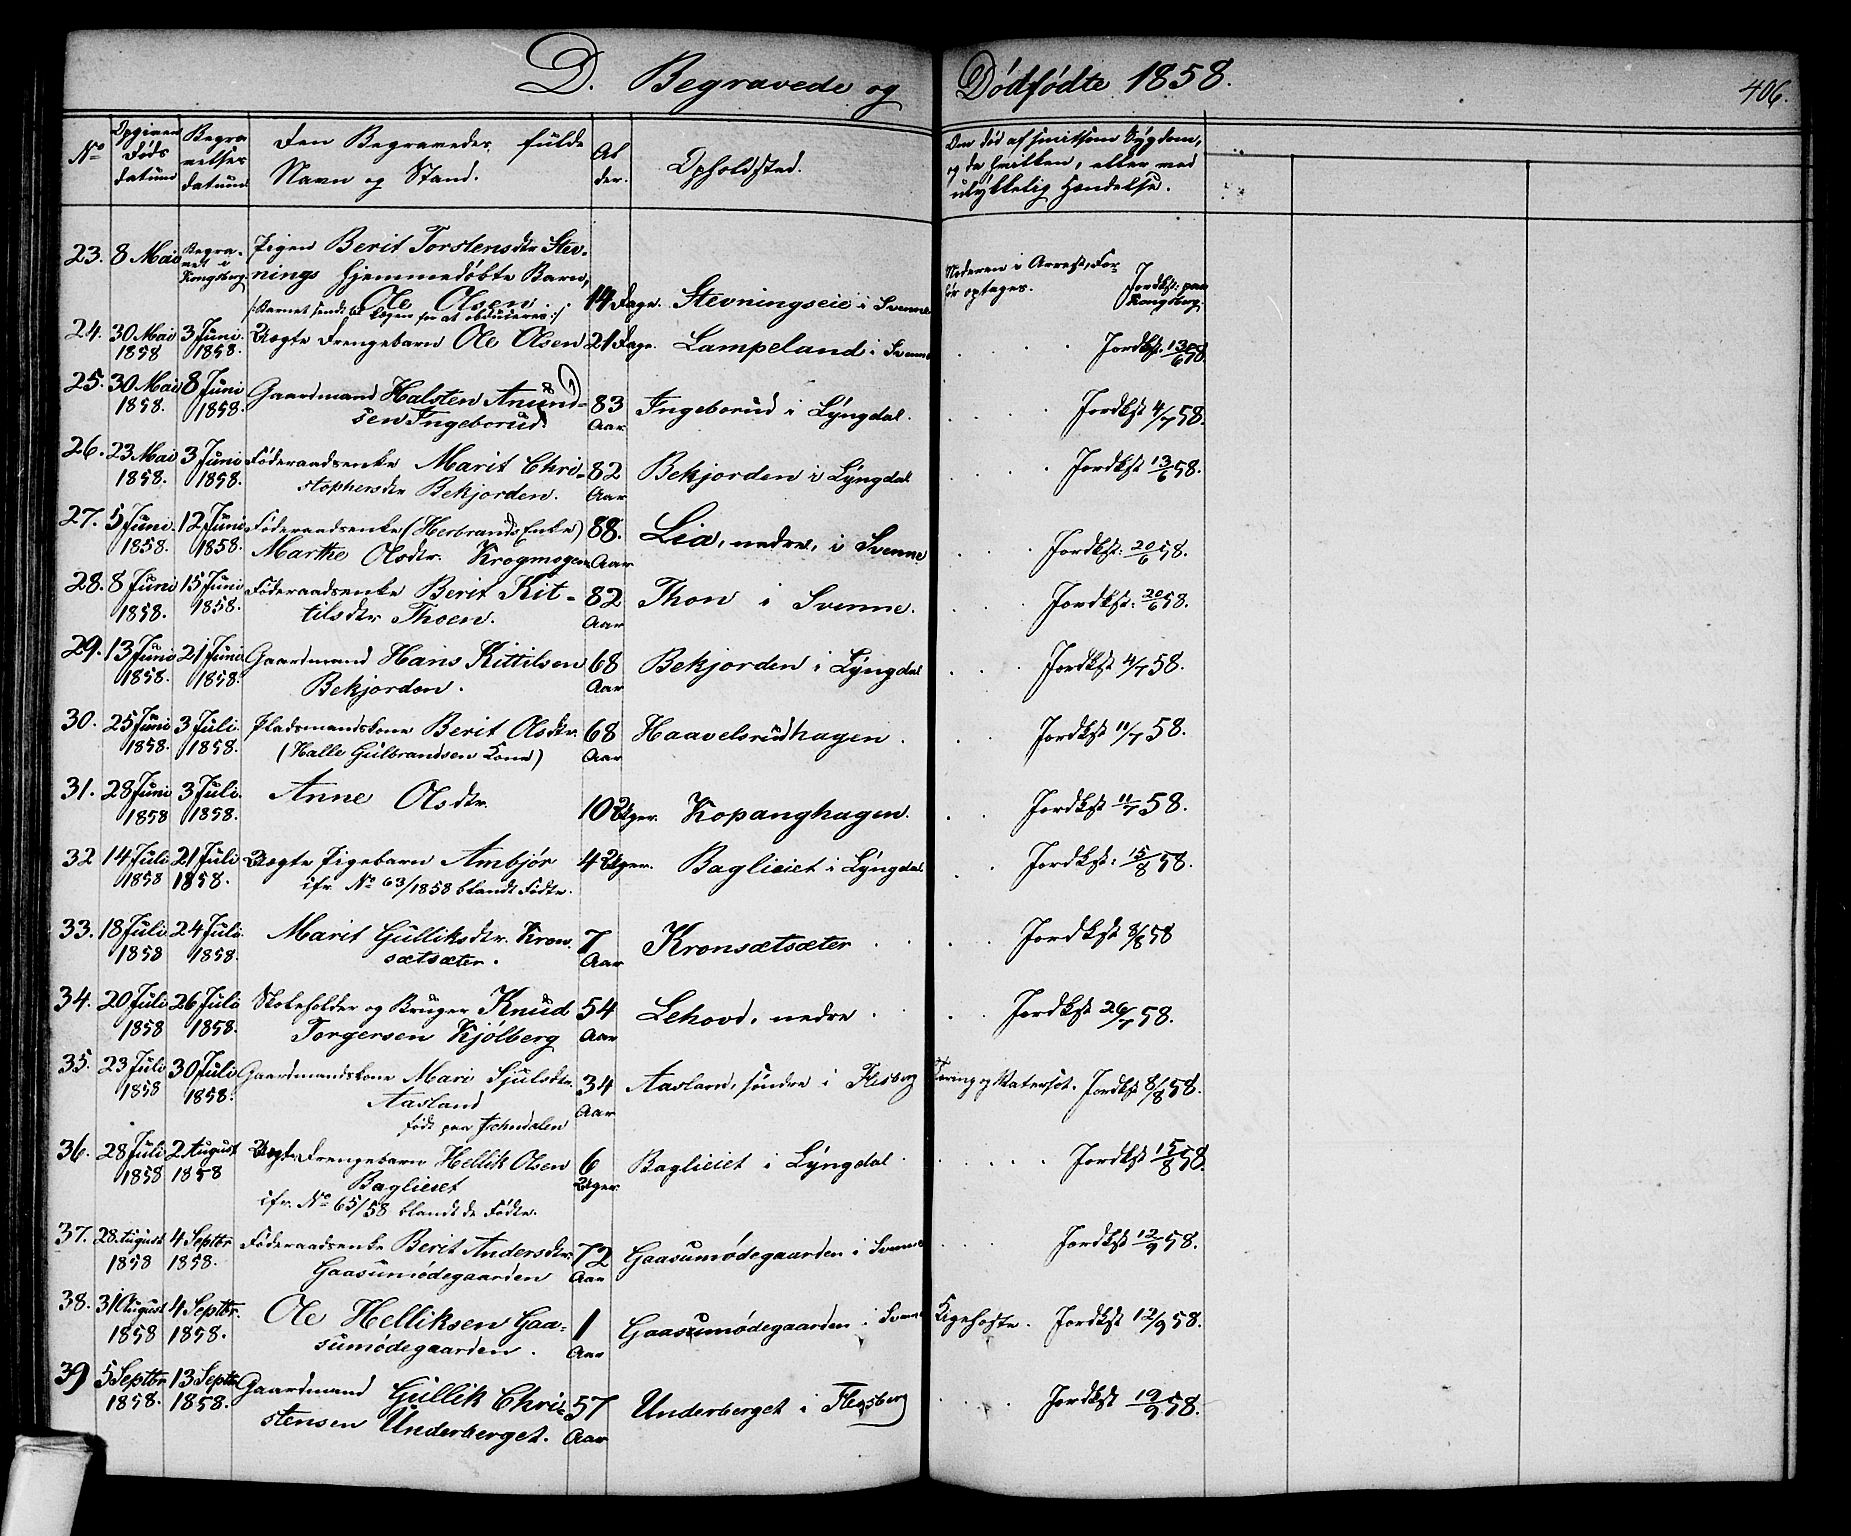 D. Begravede og Dødfødte 1858.
406.
No
Opgiven Døds datum
Begravelses datum
Den Begravedes fulde Navn og Stand.
Alder.
Opholdsted.
Om død af smitsom Sygdom, og da hvilken, eller ved ulykkelig Hændelse.
23. 8 Mai Begravet i Kongsberg Pigen Berit Torstensdtr Stevnings hjemmedøbte Barn, Ole Olsen. 14 Dage. Stevningseie i Svenne Moderen i Arrest, Forhør optages. Jordkst: paa Kongsberg.
/: Barnet sendt til Lægen for at obduceres :/
24. 30 Mai 1858 3 Juni 1858. Uægte Drengebarn Ole Olsen 21 Dage. Lampeland i Svenne Jordkst. 13/6 58
25. 30 Mai 1858. 8 Juni 1858. Gaardmand Halsten Anundsen Ingeborud 83 Aar Ingeborud i Lyngdal. Jordkst 4/7 58.
26. 23 Mai 1858. 3 Juni 1858. Føderaadsenke Marit Christophersdtr Bekjorden. 82 Aar Bekjorden i Lyngdal Jordkst 13/6 58.
27. 5 Juni 1858. 12 Juni 1858. Føderaadsenke (Herbrands Enke) Marthe Olsdtr. Krogmogen 88. Aar Lia, nedre, i Svenne Jordkst: 20/6 58.
28. 8 Juni 1858. 15 Juni 1858. Føderaadsenke Berit Kittilsdtr Thoen. 82 Aar Thon i Svenne. Jordkst: 20/6 58.
29. 13 Juni 1858. 21 Juni 1858. Gaardmand Hans Kittilsen Bekjorden. 68 Aar Bekjorden i Lyngdal Jordkst 4/7 58.
30. 25 Juni 1858. 3 Juli 1858. Pladsmandskone Berit Olsdtr. (Halle Gulbrandsen Kone) 68 Aar Haavelsrudhagen. Jordkst 11/7 58.
31. 28 Juni 1858 3 Juli 1858. Anne Olsdtr. 10 Uger. Kopanghagen. Jordkst 11/7 58.
32 14 Juli 1858 21 Juli 1858. Uægte Pigebarn Ambjør ifr. No 63/1858 blandt Fødte. 4 Uger. Baglieiet i Lyngdal. Jordkst: 15/8 58.
33. 18 Juli 1858 24 Juli 1858. Marit Gulliksdtr. Kronsætsæter. 7 Aar Kronsætsæter Jordkst 8/8 58
34. 20 Juli 1858 26 Juli 1858. Skoleholder og Bruger Knud Torgersen Kjølberg 54 Aar Lehovd, nedre Jordkst 26/7 58.
35. 23 Juli 1858 30 Juli 1858. Gaardmandskone Mari Sjulsdtr. Aasland 34 Aar Aasland, søndre i Flesberg Tæring og Vatersot. Jordkst 8/8 58.
36. 28 Juli 1858 2 August 1858 Uægte Drengebarn Hellik Olsen Baglieiet ifr. No 65/58 blandt de Fødte. 6 Uger. Baglieiet i Lyngdal. Jordkst 15/8 58
37. 28. August 1858 4 Septbr 1858. Føderaadsenke Berit Andersdtr. Gaasumødegaarden 72 Aar Gaasumødegaarden i Svenne Jordkst 12/9 58.
38. 31 August 1858 4 Septbr. 1858. Ole Helliksen Gaasumødegaarden. 1 Aar Gaasumødegaarden i Svenne Kigehoste. Jordkst 12/9 58.
39 5 Septbr 1858. 13 Septbr 1858. Gaardmand Gullik Christensen Underberget. 57 Aar Underberget i Flesberg Jordkst 19/9 58.